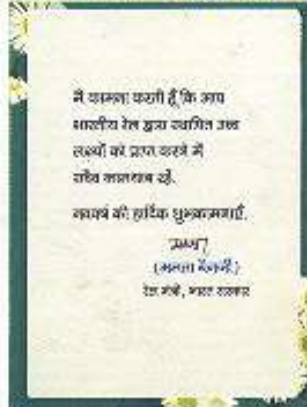 मैं कामना करती हूँ कि आप
भारतीय रेल द्वारा स्थापित उच्च
लक्ष्यों को प्राप्त करने में
सदैव कामयाब रहें.
नववर्ष की हार्दिक शुभकामनाएँ.
ममता
(ममता बैनर्जी)
रेल मंत्री, भारत सरकार